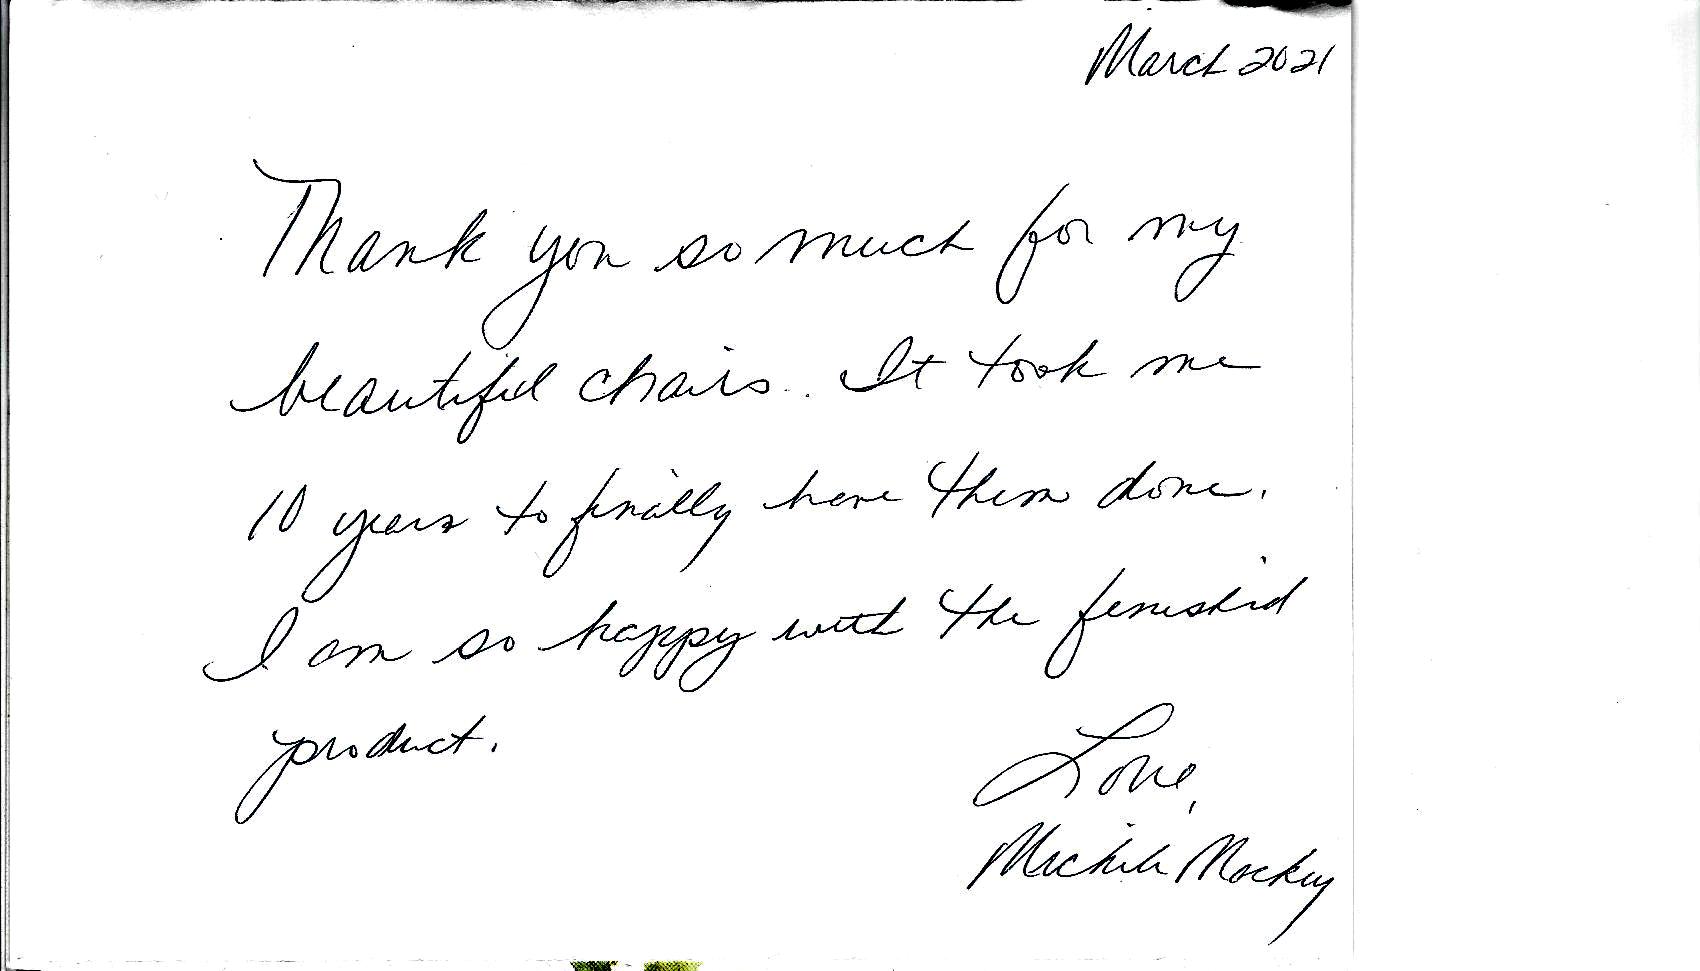 March 2021
Thank you so much for my
beautiful chairs. It took me
10 years to finally have them done.
I am so happy with the finished
product.
Love,
Michele Mackey